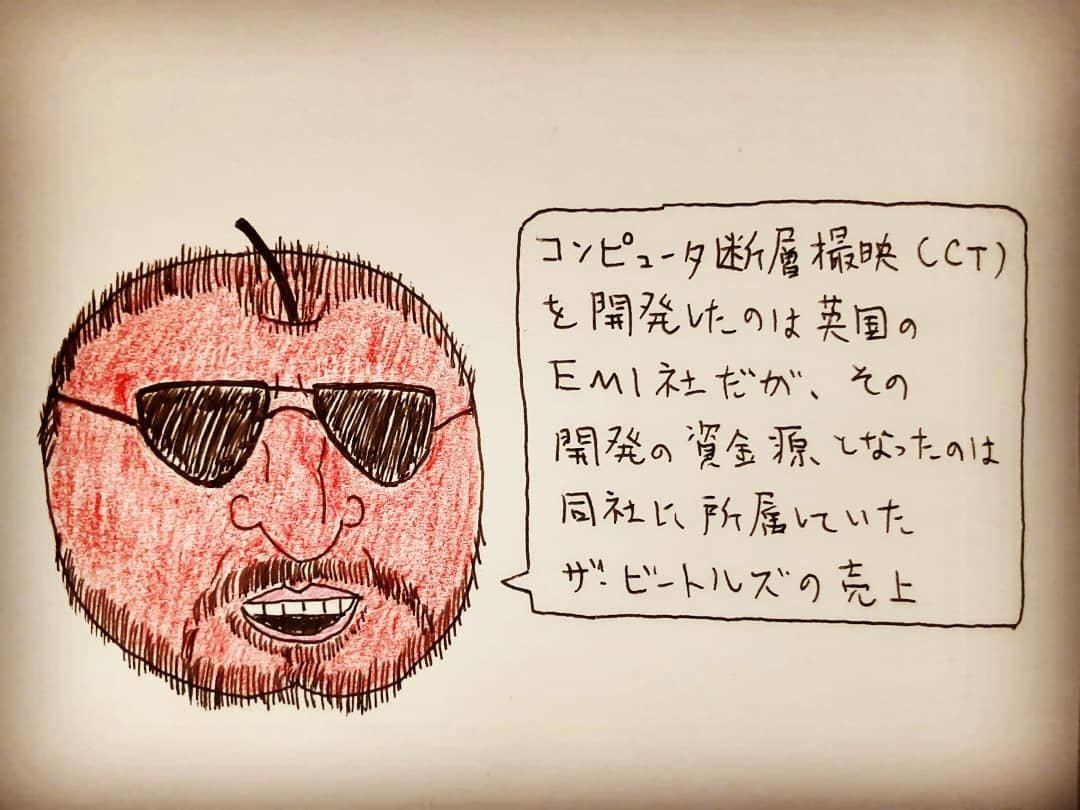 コンピュータ断層撮映(CT)
を開発したのは英国の
EMI社だが、その
開発の資金源となったのは
同社に所属していた
ザ・ビートルズの売上